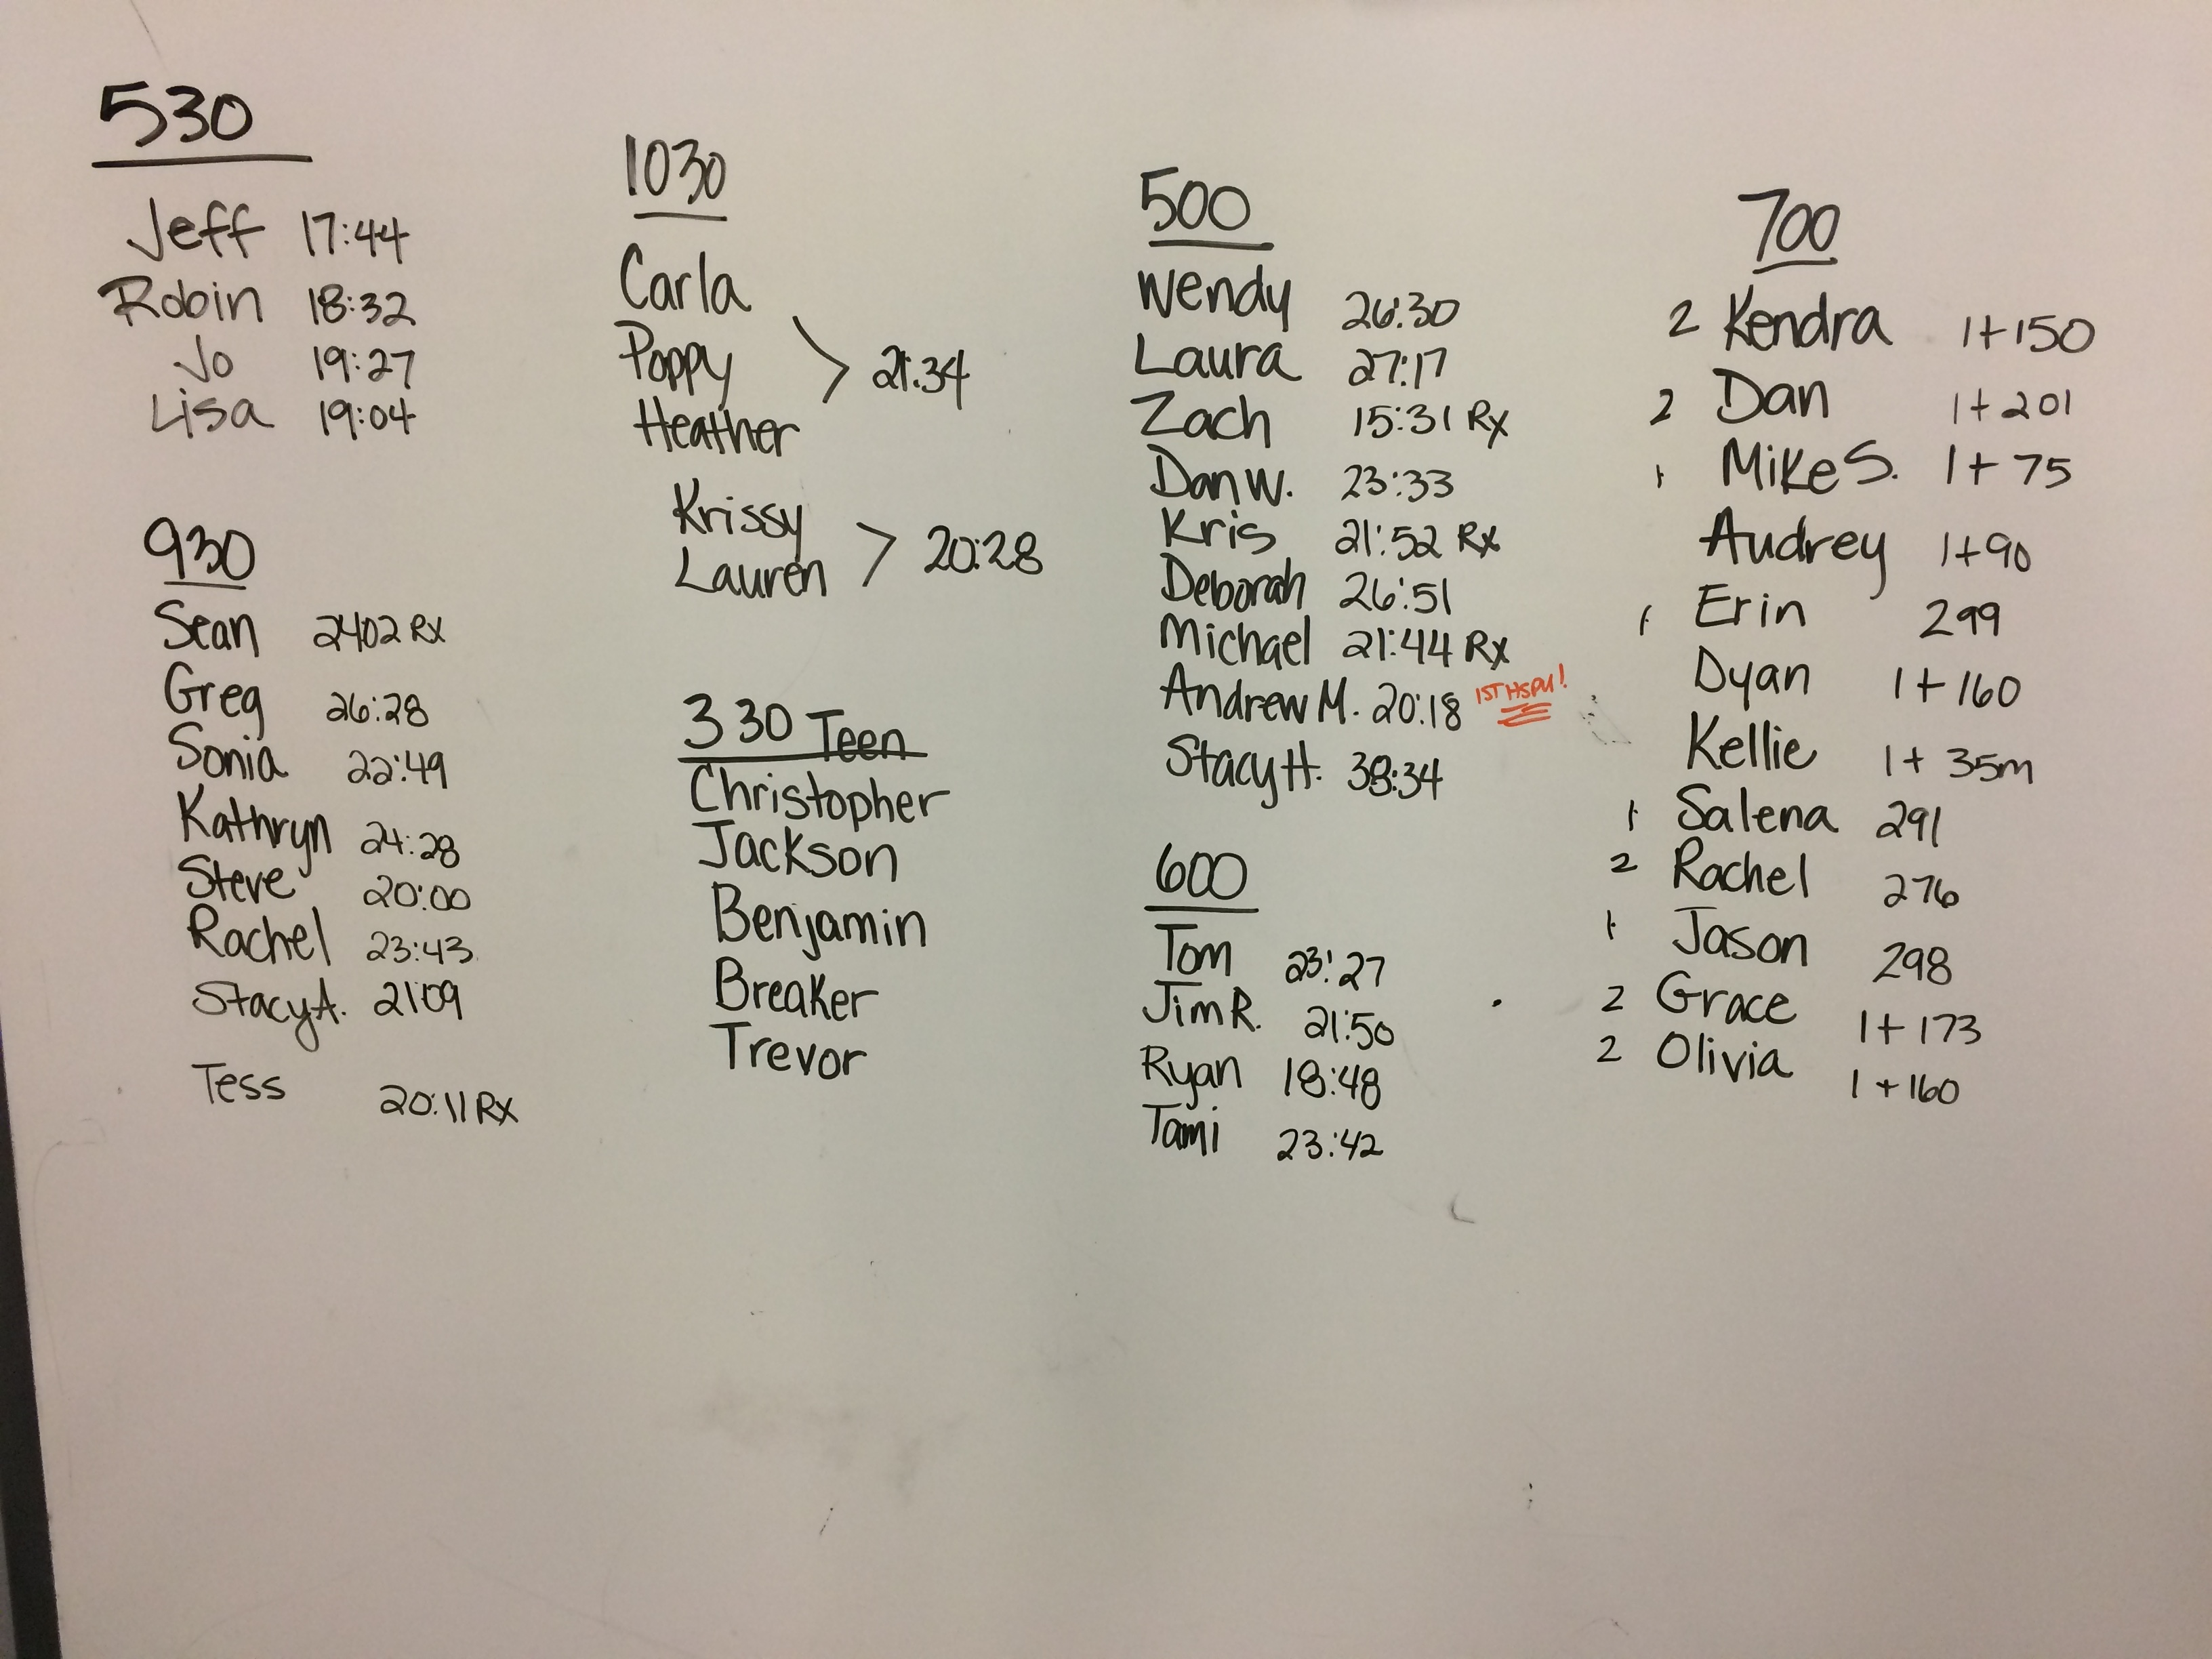 530
Jeff 17:44
Robin 18:32
Jo 19:27
Lisa 19:04
930
Sean 2402 Rx
Greg 26:28
Sonia 22:49
Kathryn 24:28
Steve 20:00
Rachel 23:43
Stacy A. 21:09
Tess 20:11 Rx
1030
Carla
Poppy > 21:34
Heather
Krissy
Lauren > 20:28
330 Teen
Christopher
Jackson
Benjamin
Breaker
Trevor
500
Wendy 26:30
Laura 27:17
Zach 15:31 Rx
Dan W. 23:33
Kris 21:52 Rx
Deborah 26:51
Michael 21:44 Rx
Andrew M. 20:18 1ST HSPU!
Stacy H. 38:34
600
Tom 23:27
Jim R. 21:50
Ryan 18:48
Tami 23:42
700
2 Kendra 1+150
2 Dan 1+201
1 Mike S. 1+75
Audrey 1+90
1 Erin 299
Dyan 1+160
Kellie 1+35m
1 Salena 291
2 Rachel 276
1 Jason 298
2 Grace 1+173
2 Olivia 1+160